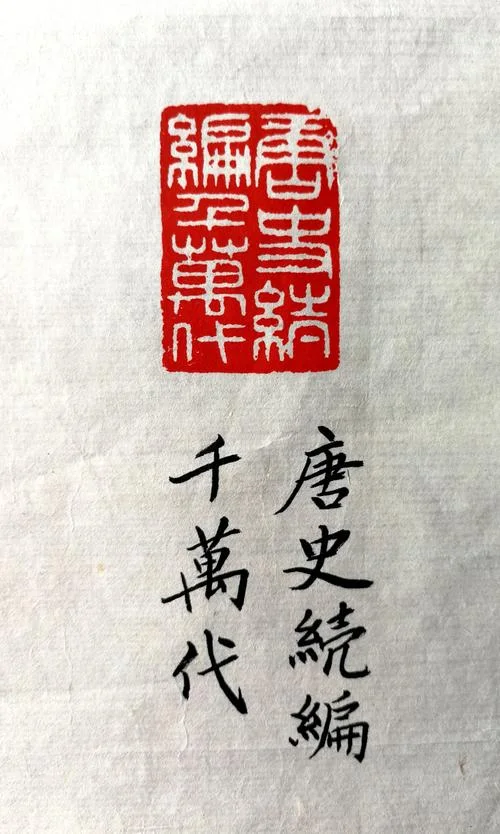 唐史続
編千萬代
唐史続編
千萬代